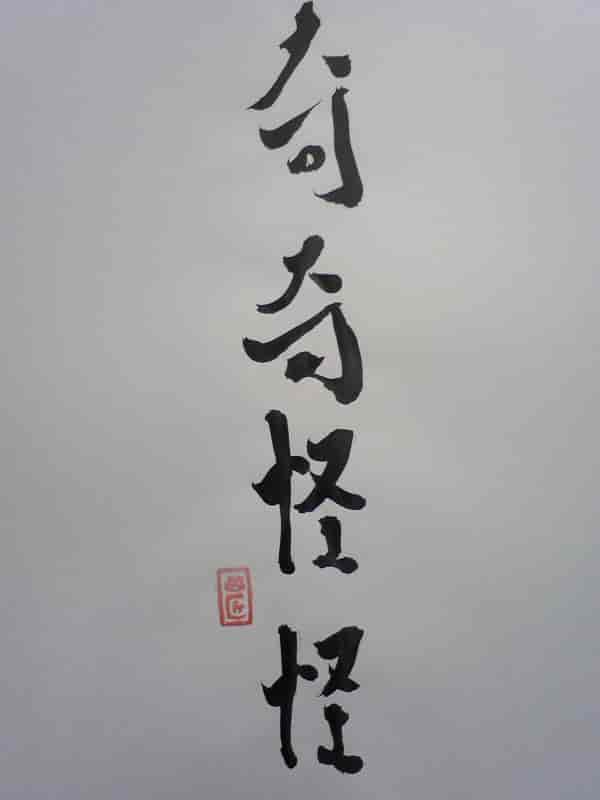 奇奇怪怪